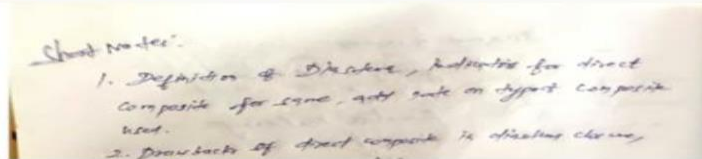 Short Notes:
1. Definition of Diastema, Indication for direct
composite for same, add note on type of composite
used.
2. Drawbacks of direct composite in diastema closure,